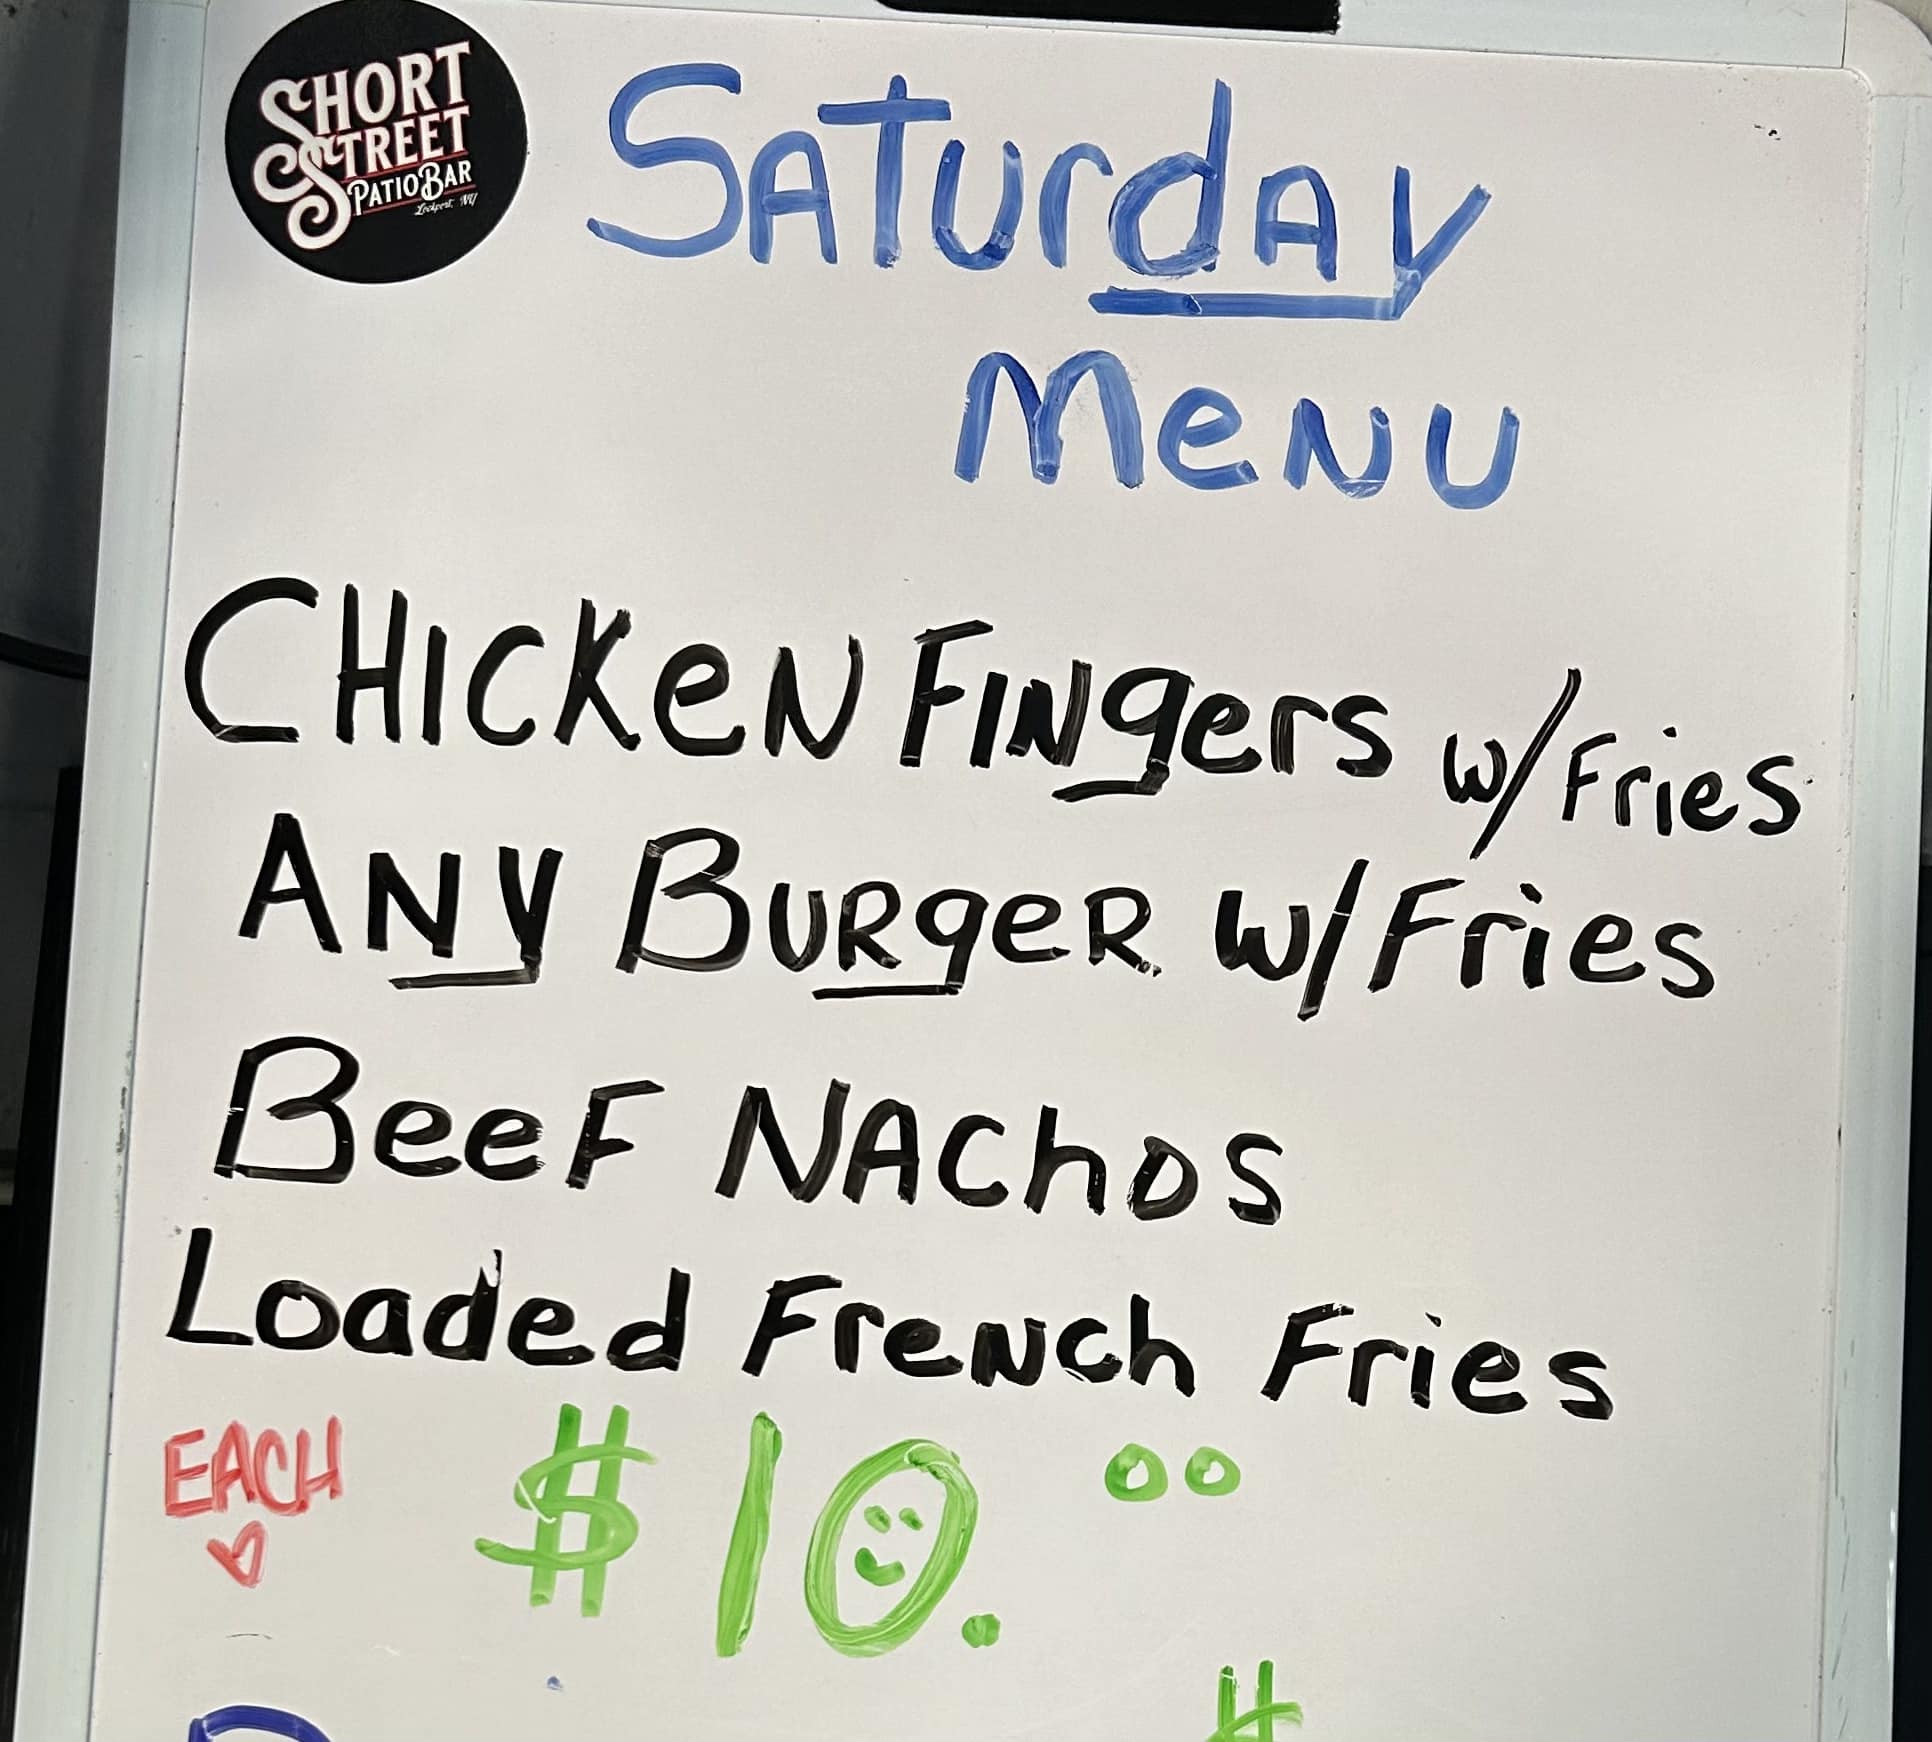 SHORT
STREET
PATIO BAR
Lockport, NY
SATurdAy
MeNU
CHICKeN FINgers w/Fries
ANy BURgeR w/Fries
BeeF NAChOS
Loaded FreNch Fries
EACH $10.00
$